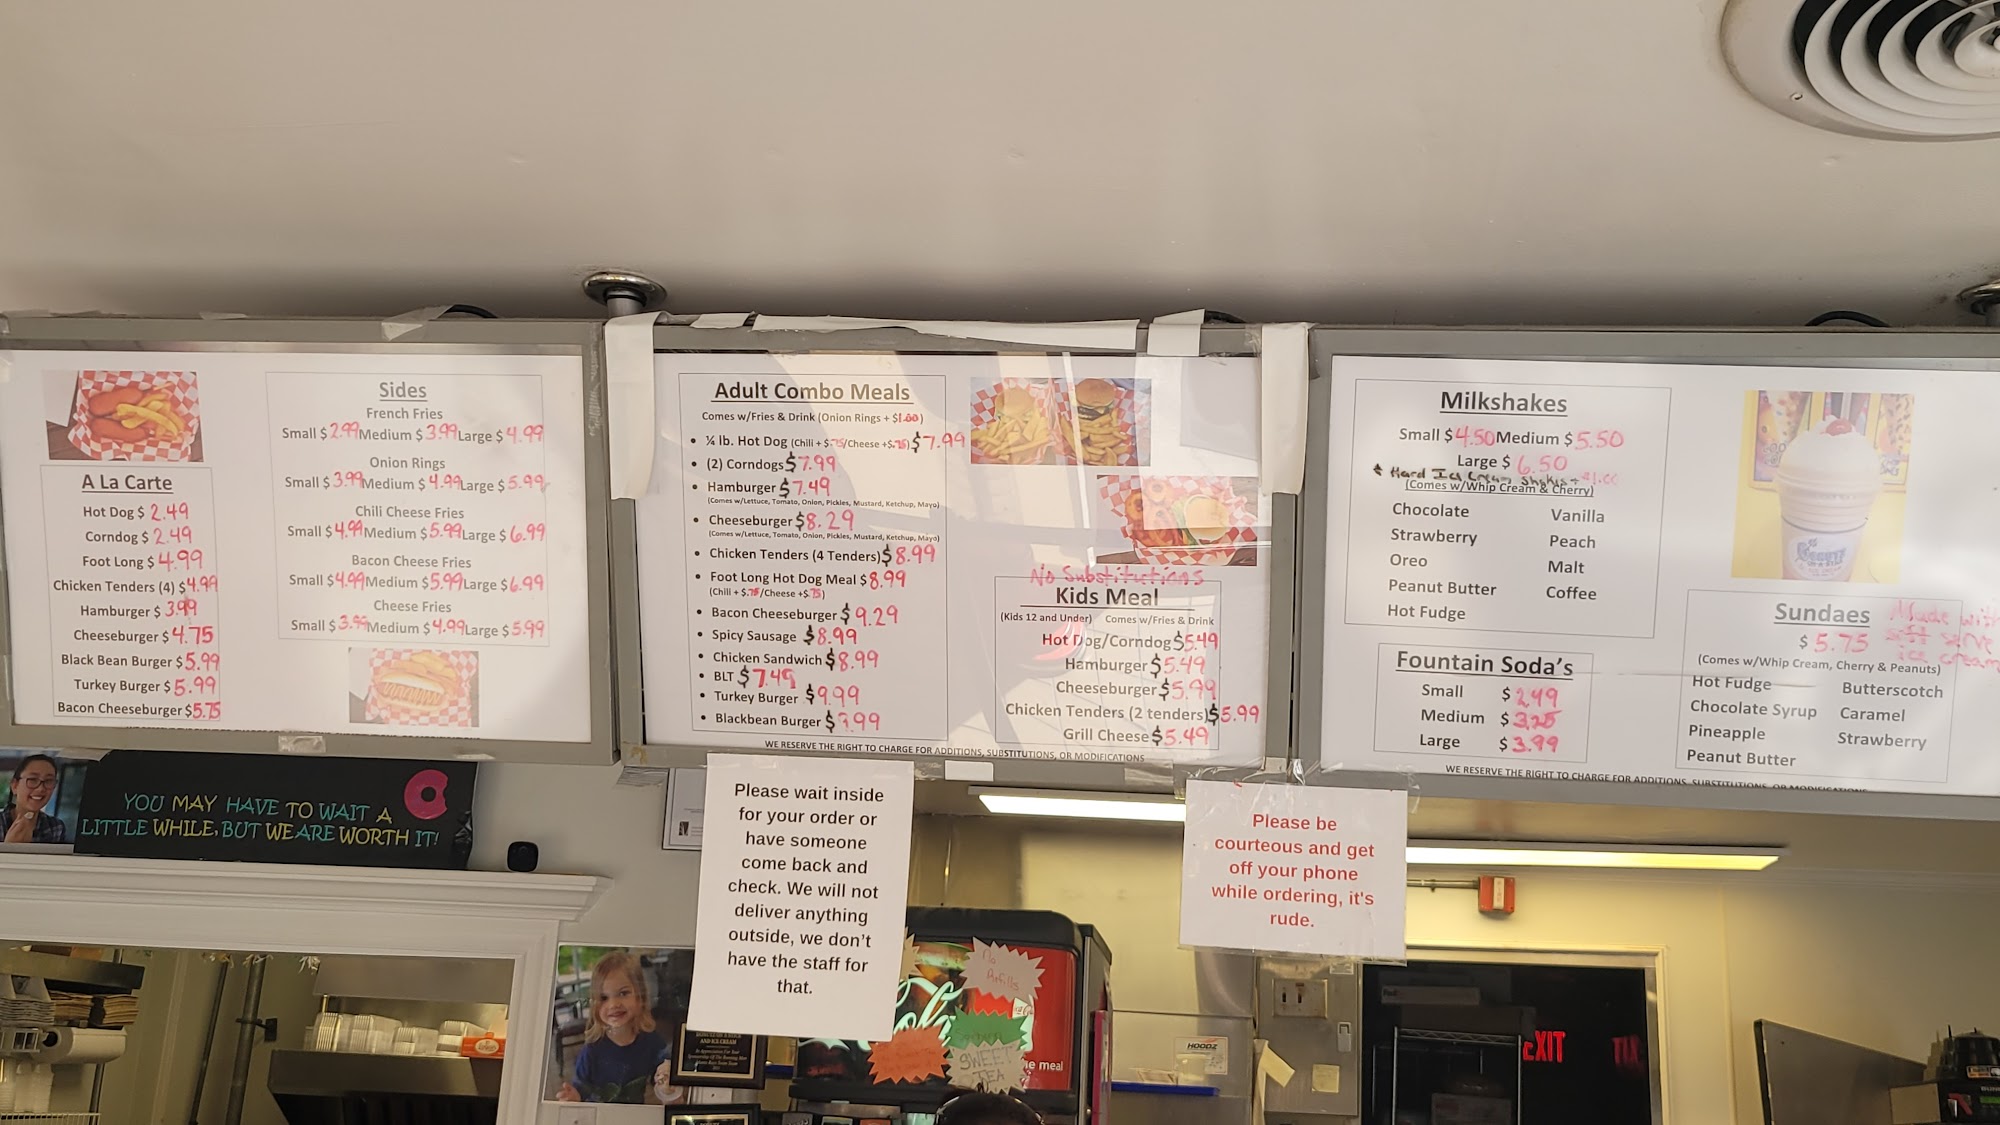 A La Carte
Hot Dog $ 2.49
Corndog $ 2.49
Foot Long $ 4.99
Chicken Tenders (4) $4.99
Hamburger $ 3.99
Cheeseburger $ 4.75
Black Bean Burger $ 5.99
Turkey Burger $ 5.99
Bacon Cheeseburger $ 5.75
Sides
French Fries
Small $ 2.99 Medium $ 3.99 Large $ 4.99
Onion Rings
Small $ 3.99 Medium $ 4.99 Large $ 5.99
Chili Cheese Fries
Small $ 4.99 Medium $ 5.99 Large $ 6.99
Bacon Cheese Fries
Small $ 4.99 Medium $ 5.99 Large $ 6.99
Cheese Fries
Small $ 3.99 Medium $ 4.99 Large $ 5.99
Adult Combo Meals
Comes w/Fries & Drink (Onion Rings + $1.00)
• ¼ lb. Hot Dog (Chili + $.75/Cheese +$.75) $7.99
• (2) Corndogs $7.99
• Hamburger $7.49
(Comes w/Lettuce, Tomato, Onion, Pickles, Mustard, Ketchup, Mayo)
• Cheeseburger $8.29
(Comes w/Lettuce, Tomato, Onion, Pickles, Mustard, Ketchup, Mayo)
• Chicken Tenders (4 Tenders) $8.99
• Foot Long Hot Dog Meal $8.99
(Chili + $.75/Cheese +$.75)
• Bacon Cheeseburger $9.29
• Spicy Sausage $8.99
• Chicken Sandwich $8.99
• BLT $7.49
• Turkey Burger $9.99
• Blackbean Burger
No Substitutions
Kids Meal
(Kids 12 and Under) Comes w/Fries & Drink
Hot Dog/Corndog $5.49
Hamburger $5.49
Cheeseburger $5.99
Chicken Tenders (2 tenders) $5.99
Grill Cheese $5.49
WE RESERVE THE RIGHT TO CHARGE FOR ADDITIONS, SUBSTITUTIONS, OR MODIFICATIONS
Milkshakes
Small $ 4.50 Medium $ 5.50
Large $ 6.50
* Hard Ice Cream Shakes + $1.00
(Comes w/Whip Cream & Cherry)
Chocolate Vanilla
Strawberry Peach
Oreo Malt
Peanut Butter Coffee
Hot Fudge
Fountain Soda's
Small $ 2.49
Medium $ 3.25
Large $ 3.99
Sundaes
$ 5.75
Made with
soft serve
ice cream
(Comes w/Whip Cream, Cherry & Peanuts)
Hot Fudge Butterscotch
Chocolate Syrup Caramel
Pineapple Strawberry
Peanut Butter
WE RESERVE THE RIGHT TO CHARGE FOR ADDITIONS, SUBSTITUTIONS, OR MODIFICATIONS
YOU MAY HAVE TO WAIT A
LITTLE WHILE, BUT WE ARE WORTH IT!
Please wait inside
for your order or
have someone
come back and
check. We will not
deliver anything
outside, we don't
have the staff for
that.
Please be
courteous and get
off your phone
while ordering, it's
rude.
No
Refills
SWEET
TEA
e meal
HOODZ
EXIT